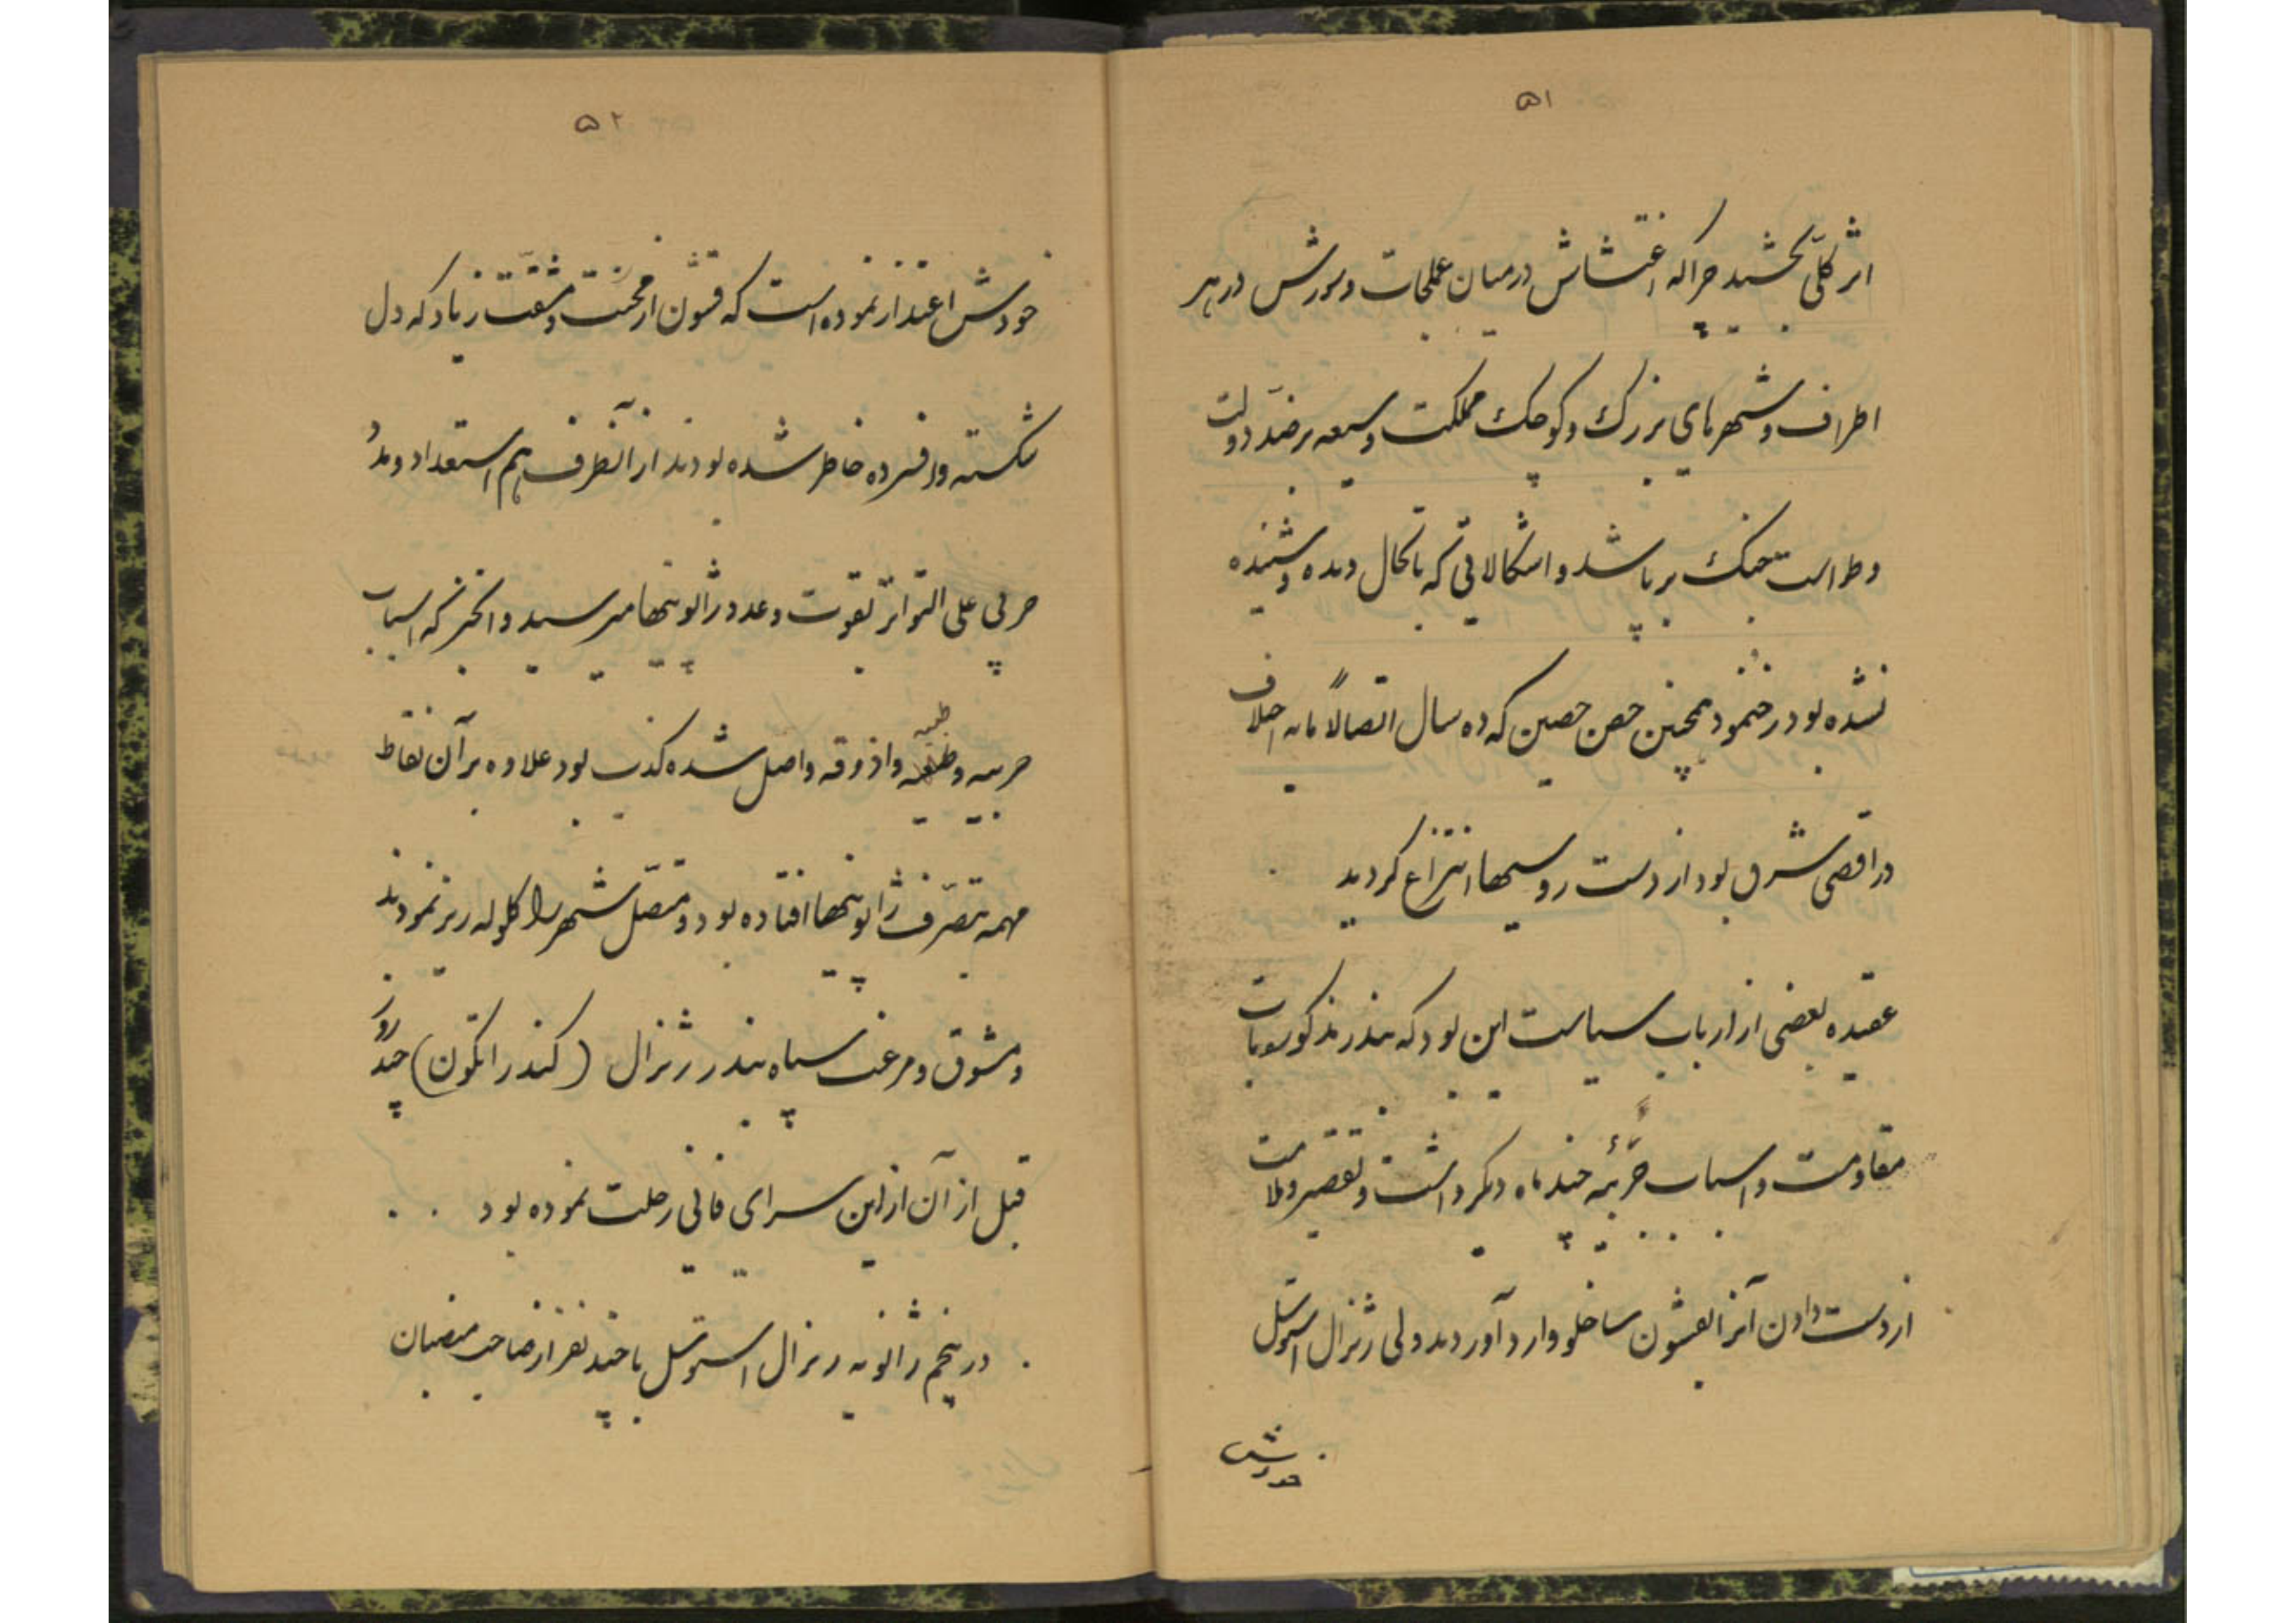 ۵۱
اثر کلّی بخشید چراکه اغتشاش در میان عملجات و یورش در هر
اطراف و شهرهای بزرک و کوچک مملکت وسیعه بر ضدّ دولت
و طراست جنک برپا شد و اشکالاتی که تابحال دیده و شنیده
نشده بود رخنمود همچنین حصن حصین که ده سال اتصالاً مایه اختلاف
در اقصی شرق بود از دست روسیها انتزاع کردید
عقیده بعضی از ارباب سیاست این بود که بندر مذکور سوبات
مقاومت و اسباب حربّیه چند ماه دیکر داشت و تقصیر و ملامت
از دست دادن آنرا بقشون ساخلو وارد آوردند ولی ژنرال استوسل
خودش
۵۲
خودش اعتذار نموده است که قشون از محنت و مشقت زیاد که دل
شکسته و افسرده خاطر شده بودند از آنطرف هم استعداد و مدد
حربی علی التواتر بقوت و عدد ژاپونیها میرسید و آنخبر که اسباب
حربیه و طبیه و اذوقه واصل شده کذب بود علاوه بر آن نقاط
طبیه
مهمه بتصرّف ژاپونیها افتاده بود و متصّل شهر را کلوله ریز نمودند
و مشوق و مرغب سپاه بندر ژنرال (کندراتکون) چند روز
قبل از آن از این سرای فانی رحلت نموده بود
در پنجم ژانویه ژنرال استوسل با چند نفر از صاحب منصبان